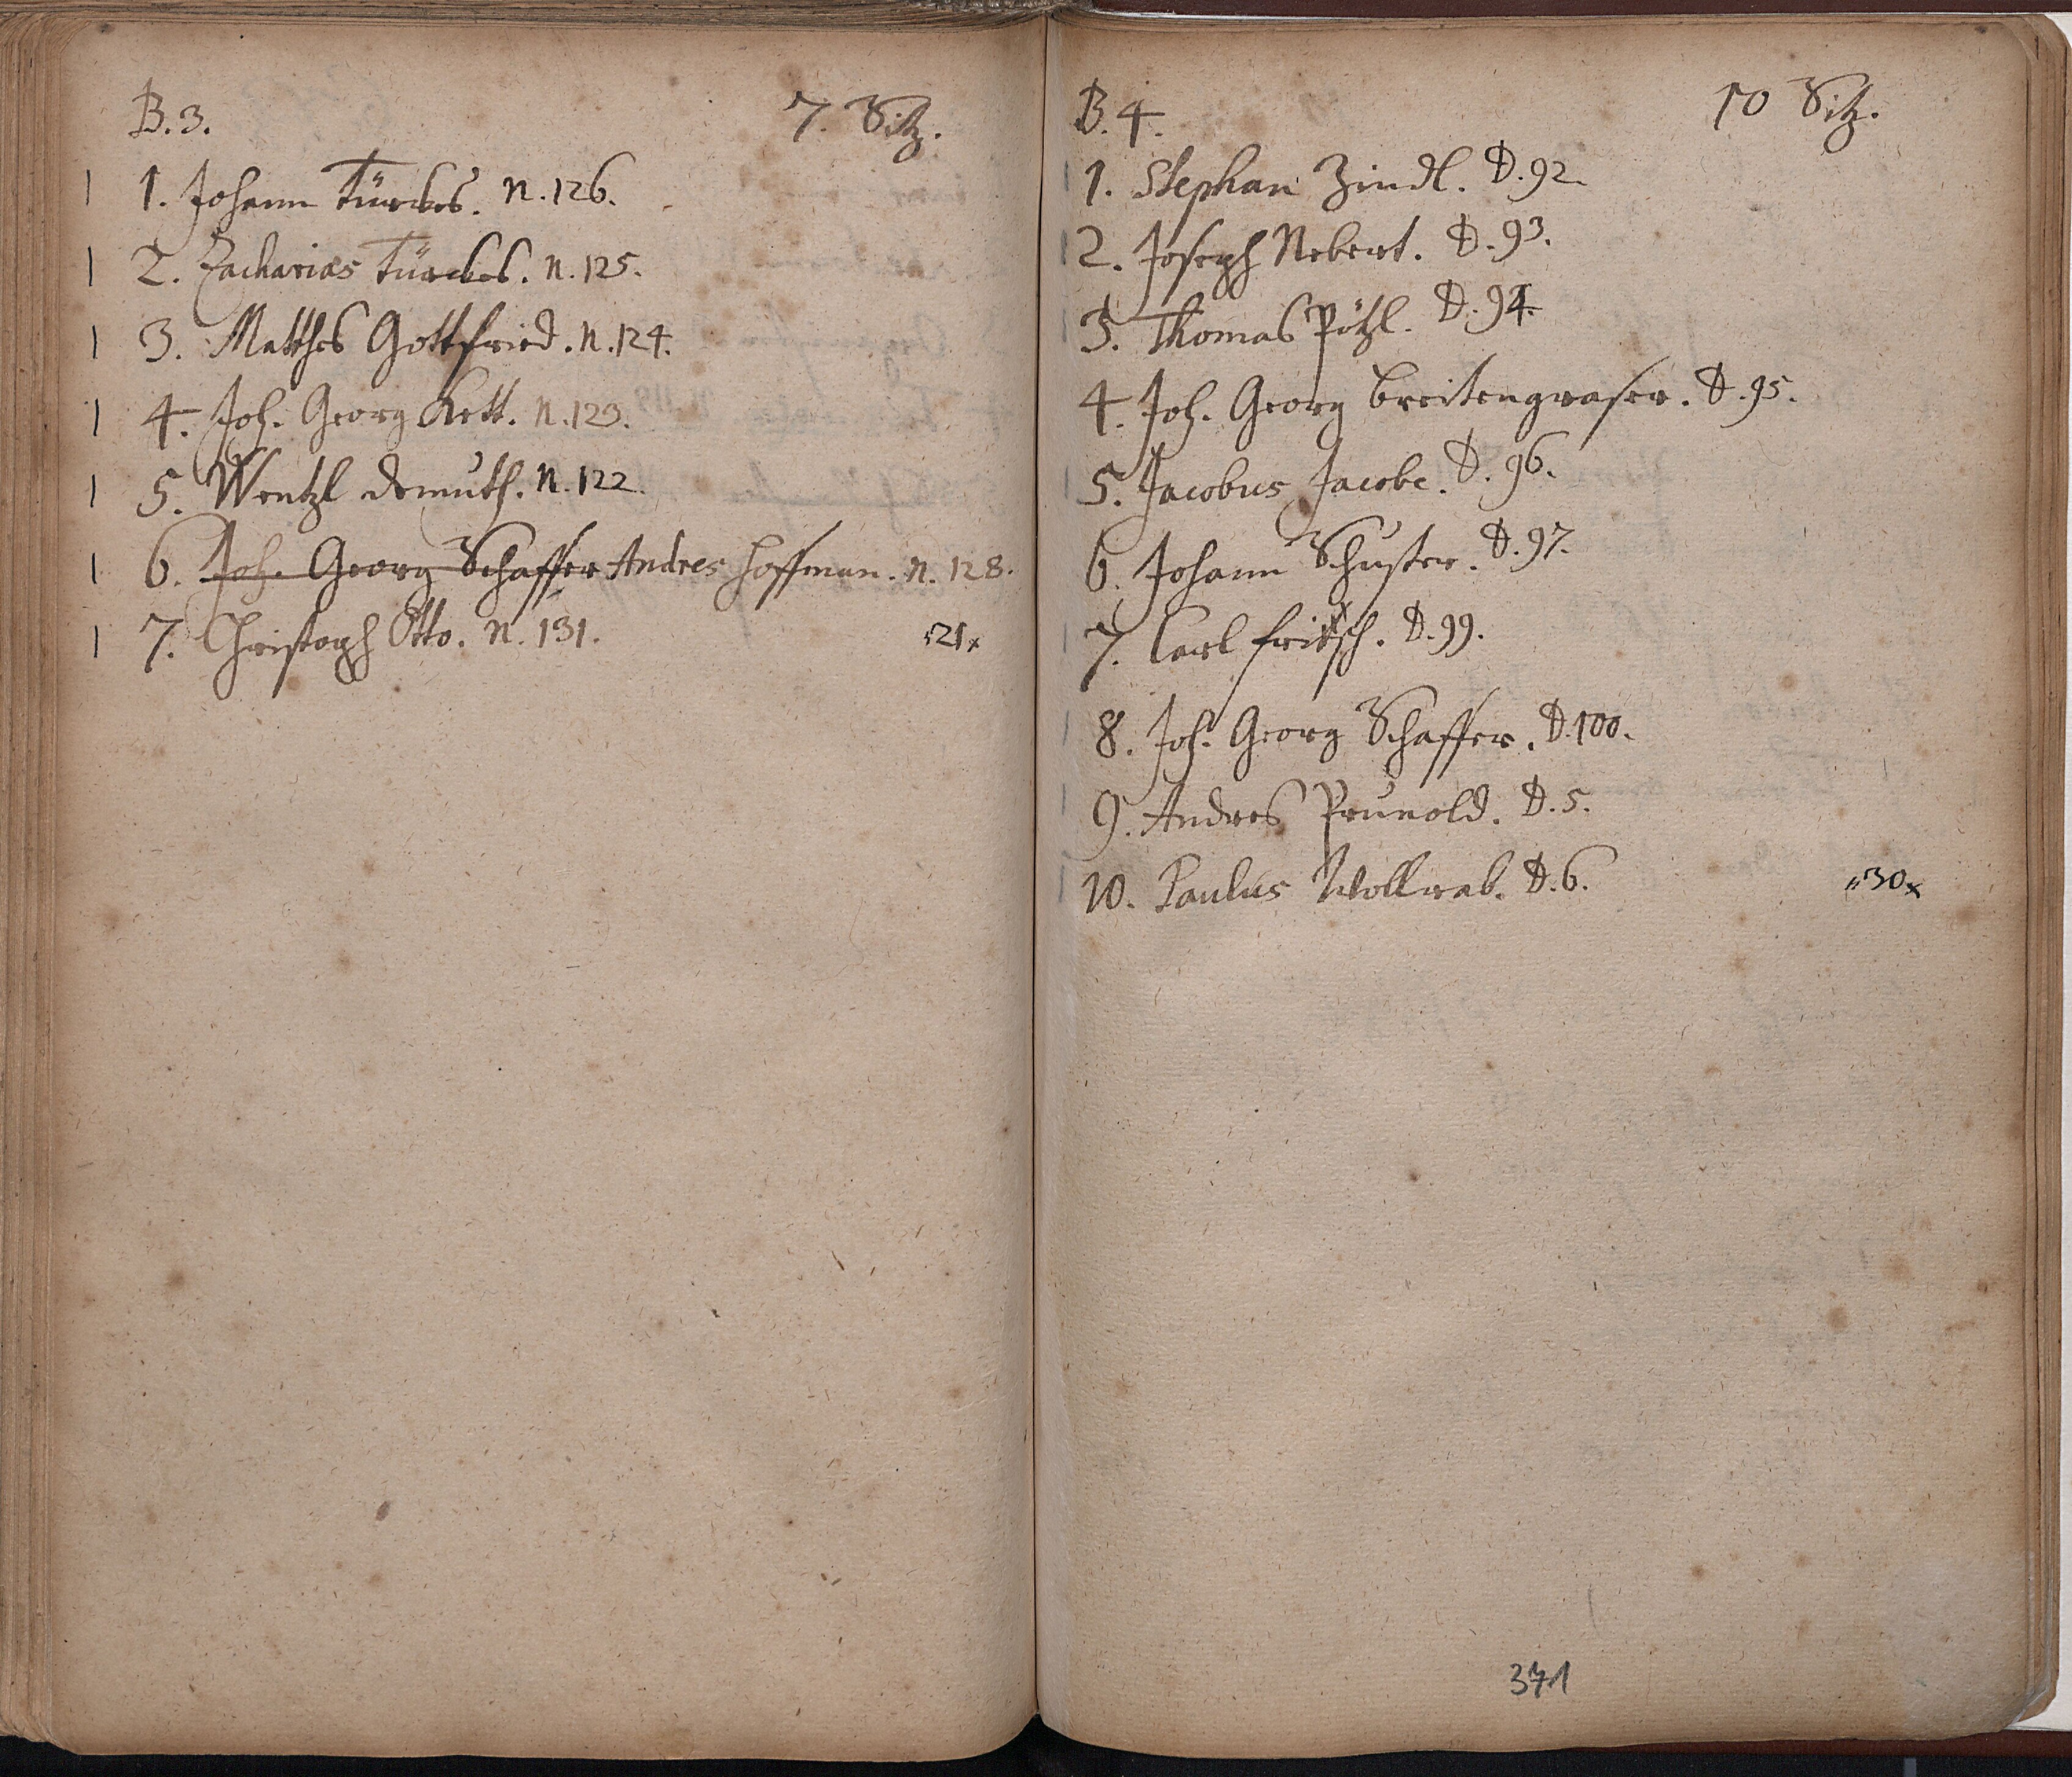 B. 3.
7. Sitz.
1. Johann Türckes. N. 126.
2. Zacharias Türckes. N. 125.
3. Matthes Gottfried. N. 124.
4. Joh. Georg Kett. N. 123.
5. Wentzl Demuth. N. 122.
6. Joh. Georg Schaffer Andres Hoffman. N. 128.
7. Christoph Otto. N. 131.
21x
B. 4.
10 Sitz.
1. Stephan Zindl. D. 92.
2. Joseph Nebert. D. 93.
3. Thomas Pötzl. D. 94.
4. Joh. Georg Breitengraser. D. 95.
5. Jacobus Jacobe. D. 96.
6. Johann Schuster. D. 97.
7. Carl Fritsch. D. 99.
8. Joh. Georg Schaffer. D. 100.
9. Andres Prunold. D. 5.
10. Paulus Wollrab. D. 6.
"30x
371